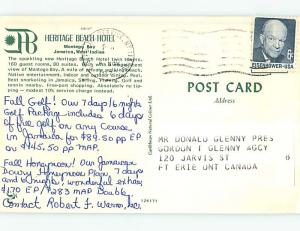 HERITAGE BEACH HOTEL
Montego Bay
Jamaica, West Indies
The sparkling new Heritage Beach Hotel twin towers,
160 guest rooms, 80 suites.
of Montego Bay. A mile of private
Native entertainment. Indoor and outdoor dining. Pool.
Best snorkeling in Jamaica. Sailing. Tennis. Golf
nearby. Free shopping. Absolutely no tip-
ping - modest 10% service charge instead.
Fall Golf! Our 7 days/6 nights
Golf Package includes 6 days
of free golf on any course
in Jamaica for $89.50 pp EP
or $145.50 pp MAP.
Fall Honeymoon! Our Jamaican
Luxury Honeymoon Plan, 7 days
and 6 nights, wonderful extras
$170 EP, $283 MAP Double.
Contact Robert F. Warner, Inc.
126171
EISENHOWER·USA
6c
POST CARD
Address
MR DONALD GLENNY PRES
GORDON T GLENNY AGCY
120 JARVIS ST
FT ERIE ONT CANADA